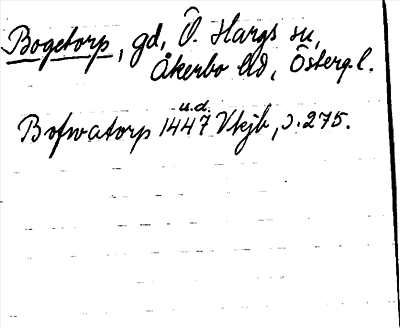 Bogetorp, gd, Ö. Hargs sn,
Åkerbo hd, Österg.l.
u.d.
Bofwatorp 1447 Vkjb, s. 275.